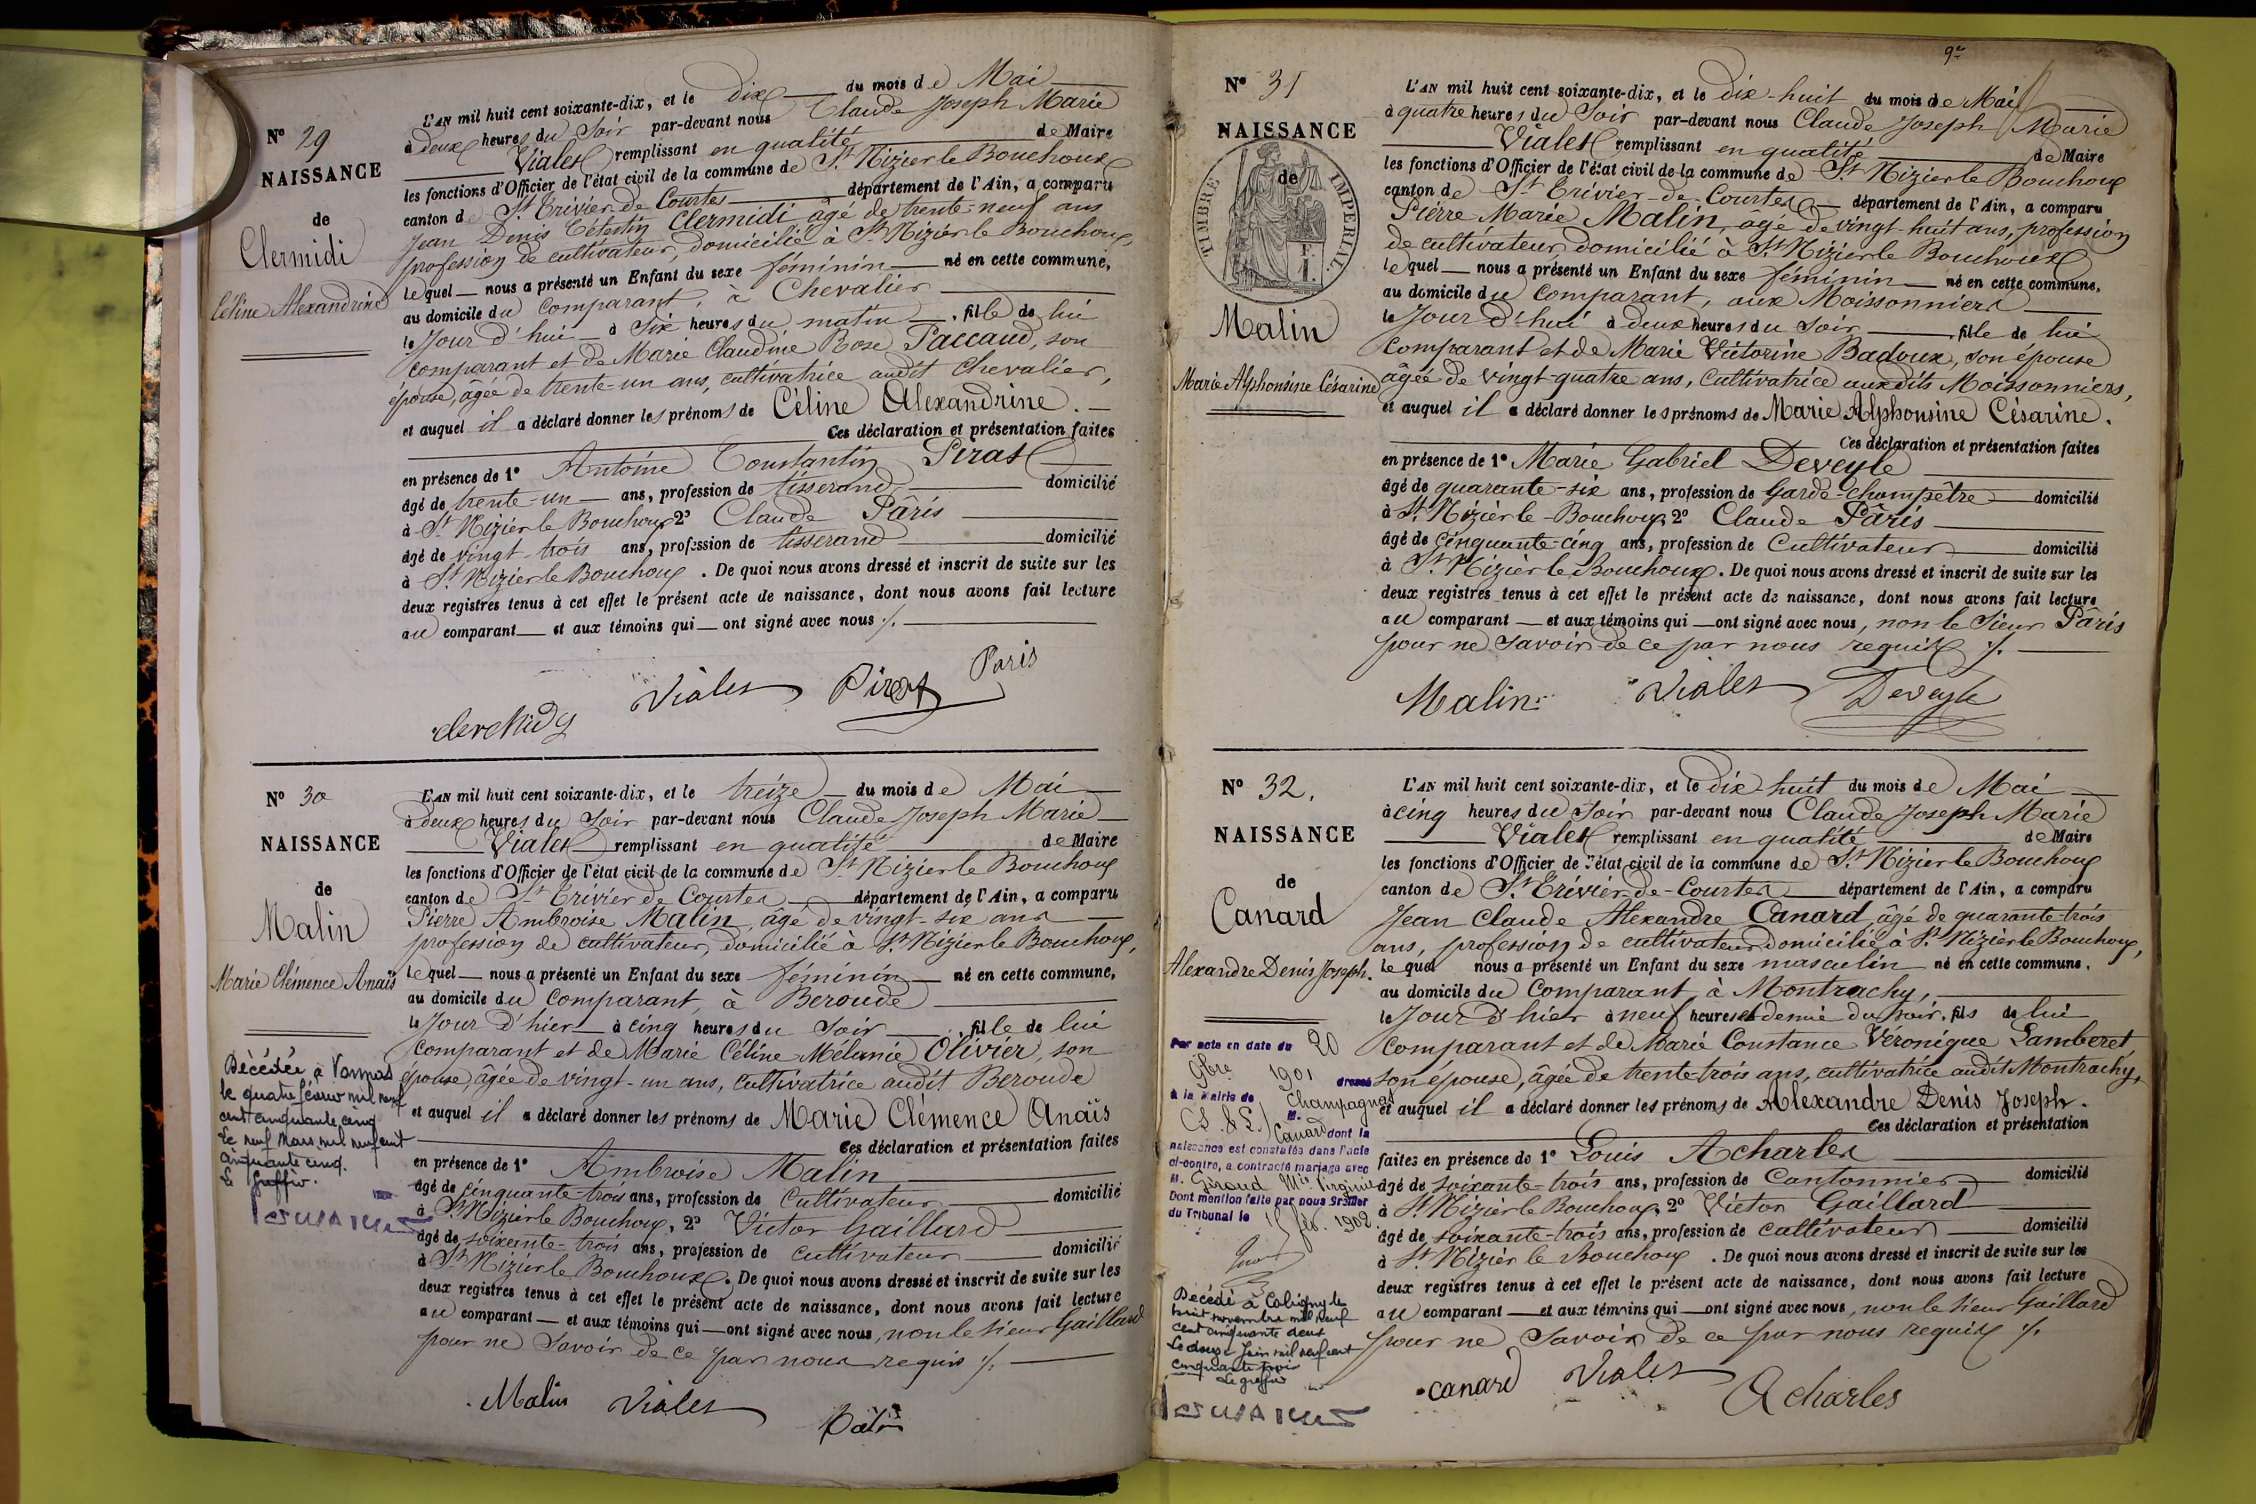 N° 29
NAISSANCE
de
Clermidi
Céline Alexandrine
L'AN mil huit cent soixante-dix, et le dix du mois de Mai
à deux heures du Soir par-devant nous Claude Joseph Marie
Vialet remplissant en qualité de Maire
les fonctions d'Officier de l'état civil de la commune de St Nizier le Bouchoux
canton de St Trivier de Courtes département de l'Ain, a comparu
Jean Denis Célestin Clermidi âgé de trente-neuf ans
profession de cultivateur, domicilié à St Nizier le Bouchoux,
lequel nous a présenté un Enfant du sexe féminin né en cette commune,
au domicile du comparant, à Chevalier
le Jour d'hui à six heures du matin, fille de lui
comparant et de Marie Claudine Rose Paccaud, son
épouse, âgée de trente-un ans, cultivatrice audit Chevalier,
et auquel il a déclaré donner les prénoms de Céline Alexandrine.
Ces déclaration et présentation faites
en présence de 1° Antoine Constantin Pirat
âgé de trente-un ans, profession de tisserand domicilié
à St Nizier le Bouchoux 2° Claude Pâris
âgé de vingt-trois ans, profession de tisserand domicilié
à St Nizier le Bouchoux. De quoi nous avons dressé et inscrit de suite sur les
deux registres tenus à cet effet le présent acte de naissance, dont nous avons fait lecture
au comparant et aux témoins qui ont signé avec nous ./.
Vialet Pirat Paris
N° 30
NAISSANCE
de
Malin
Marie Clémence Anaïs
Décédée à Vonnas
le quatre février mil neuf
cent cinquante cinq
Le neuf Mars mil neuf cent
cinquante cinq.
Le Greffier.
L'AN mil huit cent soixante-dix, et le treize du mois de Mai
à deux heures du Soir par-devant nous Claude Joseph Marie
Vialet remplissant en qualité de Maire
les fonctions d'Officier de l'état civil de la commune de St Nizier le Bouchoux
canton de St Trivier de Courtes département de l'Ain, a comparu
Pierre Ambroise Malin, âgé de vingt-six ans
profession de cultivateur, domicilié à St Nizier le Bouchoux,
lequel nous a présenté un Enfant du sexe féminin né en cette commune,
au domicile du comparant, à Beroude
le Jour d'hier à cinq heures du Soir, fille de lui
comparant et de Marie Céline Mélanie Olivier, son
épouse, âgée de vingt-un ans, cultivatrice audit Beroude
et auquel il a déclaré donner les prénoms de Marie Clémence Anaïs
Ces déclaration et présentation faites
en présence de 1° Ambroise Malin
âgé de cinquante-trois ans, profession de Cultivateur domicilié
à St Nizier le Bouchoux, 2° Victor Gaillard
âgé de soixante-trois ans, profession de cultivateur domicilié
à St Nizier le Bouchoux. De quoi nous avons dressé et inscrit de suite sur les
deux registres tenus à cet effet le présent acte de naissance, dont nous avons fait lecture
au comparant et aux témoins qui ont signé avec nous, non le sieur Gaillard
pour ne Savoir de ce par nous requis ./.
Malin Vialet Malin
9e
N° 31
NAISSANCE
de
TIMBRE IMPÉRIAL
Malin
Marie Alphonsine Césarine
L'AN mil huit cent soixante-dix, et le dix-huit du mois de Mai
à quatre heures du Soir par-devant nous Claude Joseph Marie
Vialet remplissant en qualité de Maire
les fonctions d'Officier de l'état civil de la commune de St Nizier le Bouchoux
canton de St Trivier-de-Courtes département de l'Ain, a comparu
Pierre Marie Malin, âgé de vingt-huit ans, profession
de cultivateur, domicilié à St Nizier le Bouchoux
lequel nous a présenté un Enfant du sexe féminin né en cette commune,
au domicile du comparant, aux Moissonniers
le Jour d'hui à deux heures du Soir, fille de lui
comparant et de Marie Victorine Badoux, son épouse
âgée de vingt-quatre ans, cultivatrice auxdits Moissonniers,
et auquel il a déclaré donner les prénoms de Marie Alphonsine Césarine.
Ces déclaration et présentation faites
en présence de 1° Marie Gabriel Deveyle
âgé de quarante-six ans, profession de Garde-Champêtre domicilié
à St Nizier le-Bouchoux 2° Claude Pâris
âgé de Cinquante-cinq ans, profession de Cultivateur domicilié
à St Nizier le Bouchoux. De quoi nous avons dressé et inscrit de suite sur les
deux registres tenus à cet effet le présent acte de naissance, dont nous avons fait lecture
au comparant et aux témoins qui ont signé avec nous, non le Sieur Pâris
pour ne Savoir de ce par nous requis ./.
Malin Vialet Deveyle
N° 32.
NAISSANCE
de
Canard
Alexandre Denis Joseph.
Par acte en date du 20
9bre 1901 dressé
à la Mairie de Champagnat
(S. & L.) M.
Canard dont la
naissance est constatée dans l'acte
ci-contre, a contracté mariage avec
M. Giroud Mie Virginie
Dont mention faite par nous Greffier
du Tribunal le 15 fév. 1902.
Décédé à Coligny le
huit novembre mil neuf
cent cinquante deux
Le douze Juin mil neuf cent
cinquante trois
Le greffier
L'AN mil huit cent soixante-dix, et le dix huit du mois de Mai
à cinq heures du Soir par-devant nous Claude Joseph Marie
Vialet remplissant en qualité de Maire
les fonctions d'Officier de l'état civil de la commune de St Nizier le Bouchoux
canton de St Trévier-de-Courtes département de l'Ain, a comparu
Jean Claude Alexandre Canard, âgé de quarante-trois
ans, profession de cultivateur domicilié à St Nizier le Bouchoux,
lequel nous a présenté un Enfant du sexe masculin né en cette commune,
au domicile du comparant à Montrachy,
le Jour d'hier à neuf heures et demie du soir, fils de lui
comparant et de Marie Constance Véronique Lamberet
son épouse, âgée de trente trois ans, cultivatrice audit Montrachy,
et auquel il a déclaré donner les prénoms de Alexandre Denis Joseph.
Ces déclaration et présentation
faites en présence de 1° Louis Acharles
âgé de soixante-trois ans, profession de Cantonnier domicilié
à St Nizier le Bouchoux 2° Victor Gaillard
âgé de soixante-trois ans, profession de cultivateur domicilié
à St Nizier le Bouchoux. De quoi nous avons dressé et inscrit de suite sur les
deux registres tenus à cet effet le présent acte de naissance, dont nous avons fait lecture
au comparant et aux témoins qui ont signé avec nous, non le sieur Gaillard
pour ne Savoir de ce par nous requis ./.
canard Vialet Acharles